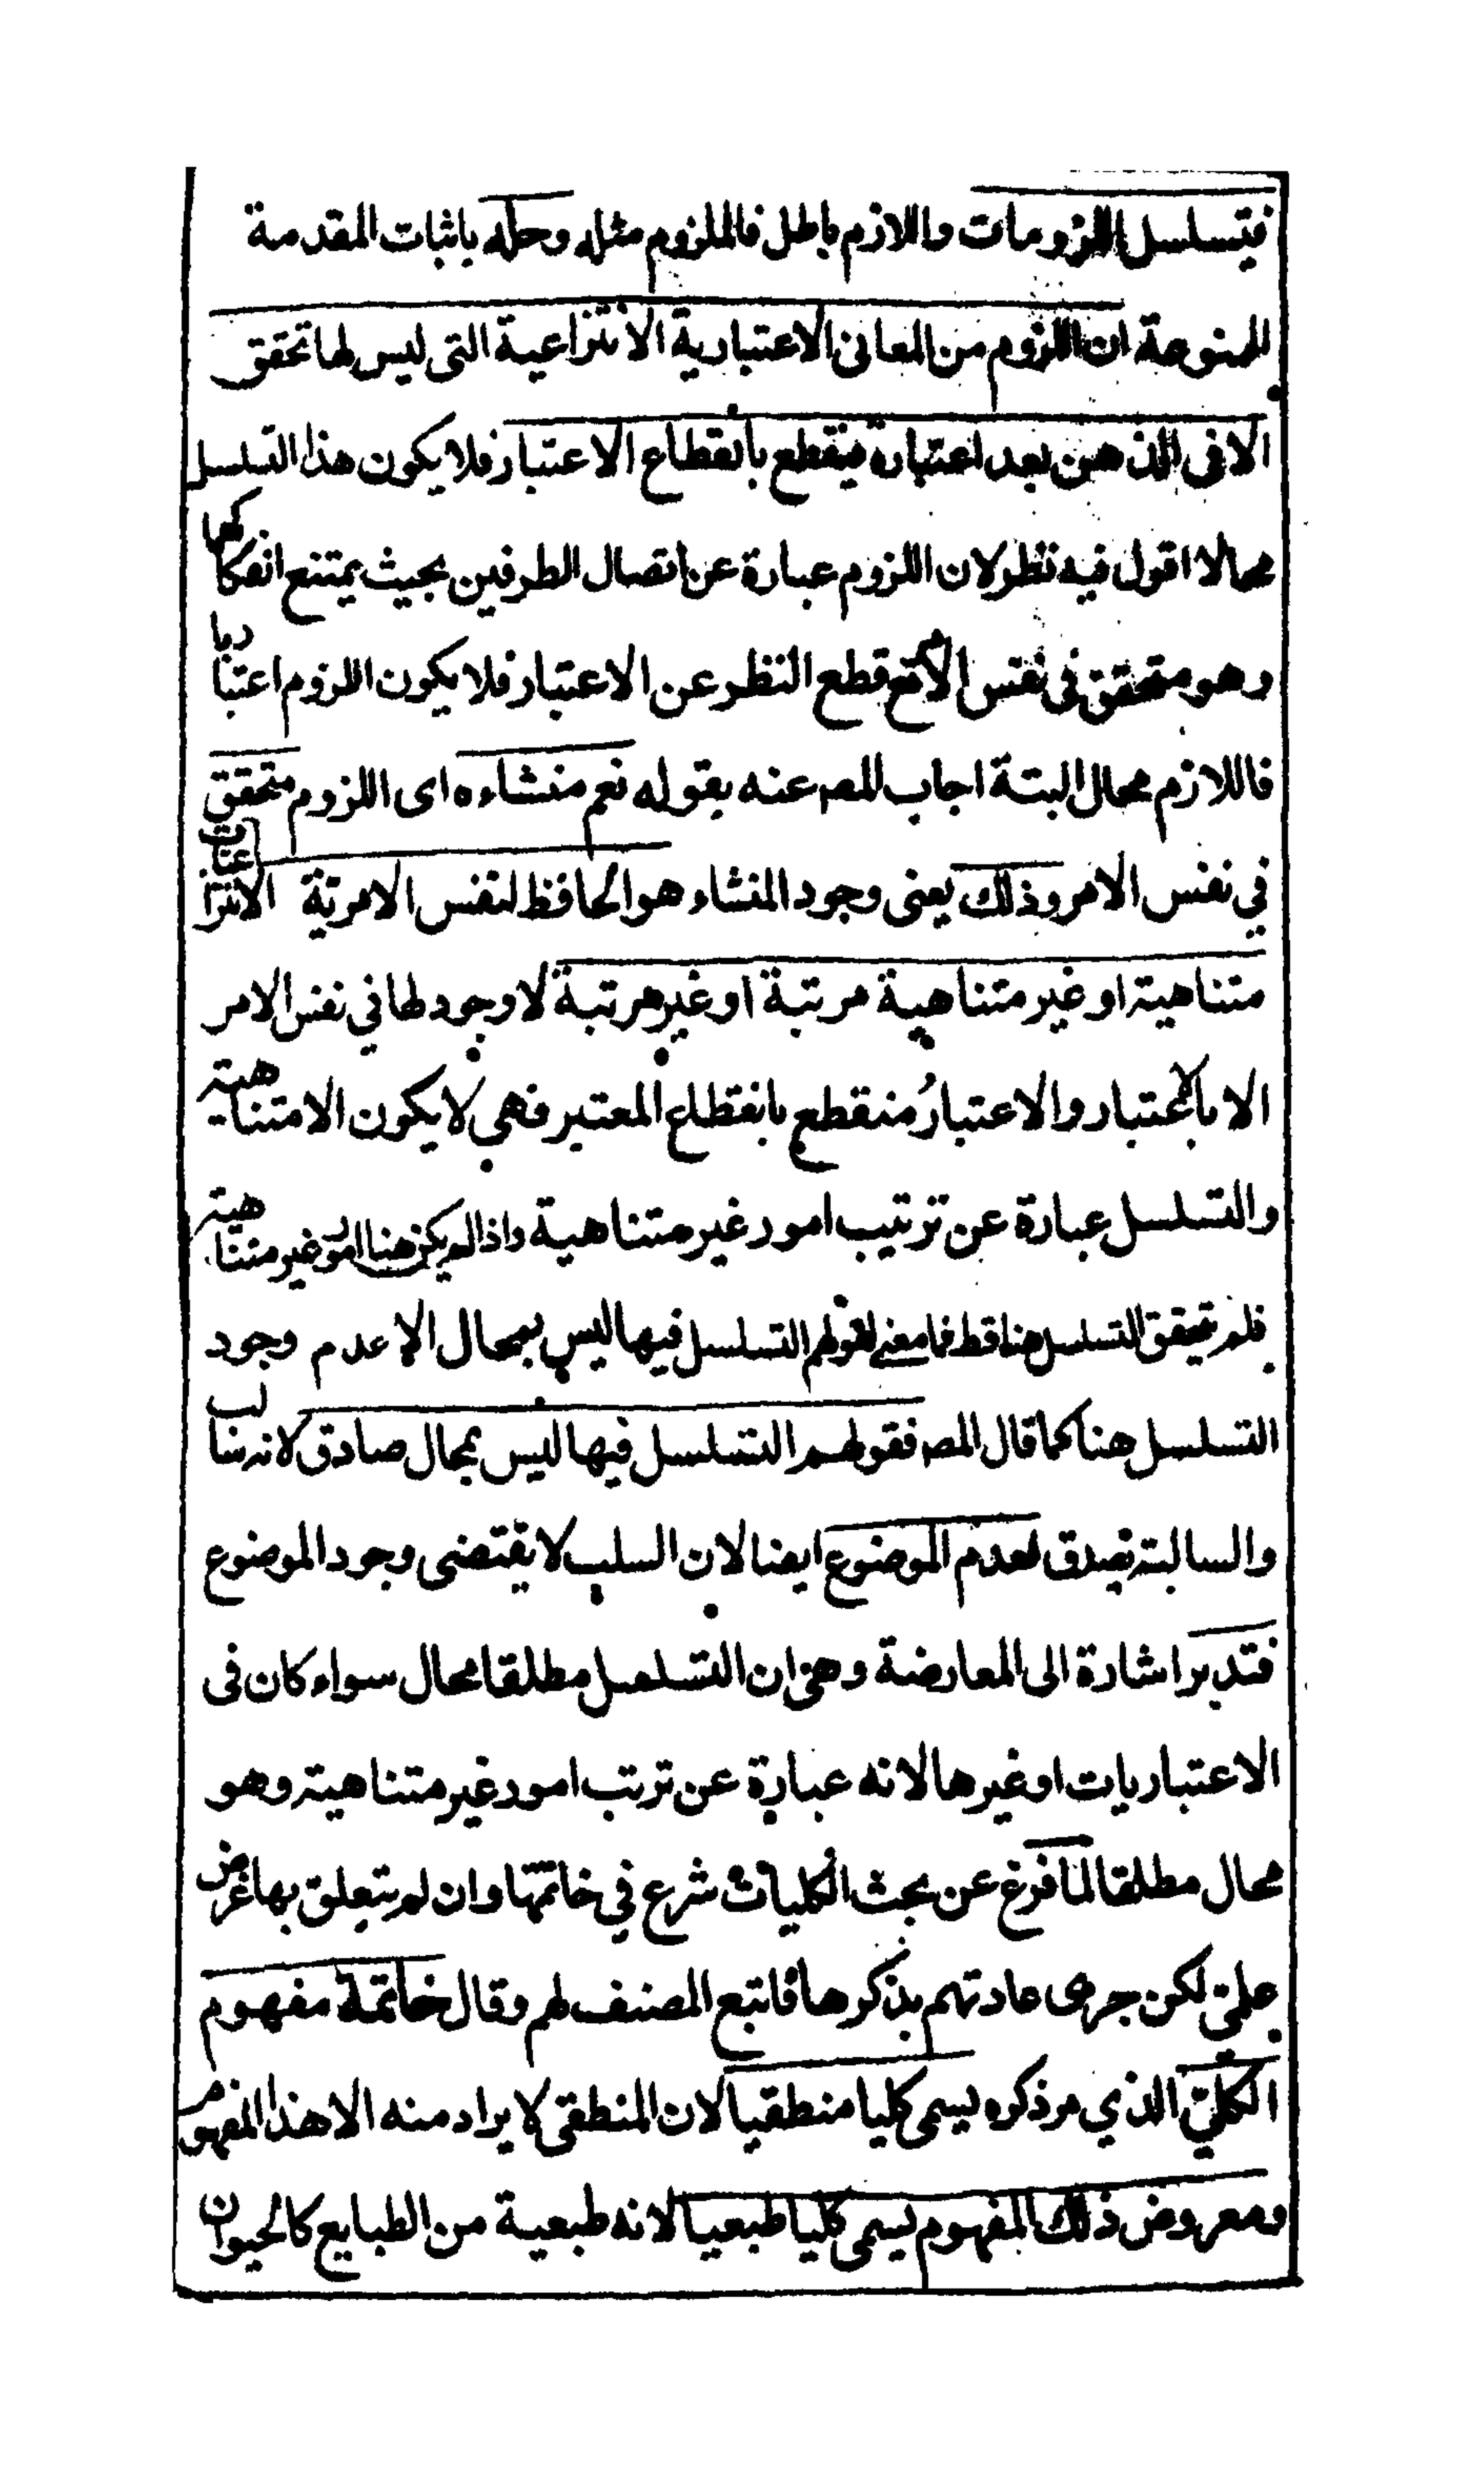 فيتسلسل اللزومات واللازم باطل فالملزوم مثله وحله باثبات المقدمة
الممنوعة ان اللزوم من المعانى الاعتبارية الانتزاعية التى ليس لها تحقق
الا فى الذهن بعد اعتباره فينقطع بانقطاع الاعتبار فلا يكون هذا التسلسل
محالا اقول فيه نظر لان اللزوم عبارة عن اتصال الطرفين بحيث يمتنع انفكاكهما
وهو متحقق فى نفس الامر مع قطع النظر عن الاعتبار فلا يكون اللزوم اعتباريا
فاللازم محال البتة اجاب المصـ عنه بقوله نعم منشاءه اى اللزوم متحقق
في نفس الامر وذلك يعنى وجود المنشاء هو الحافظ لنفس الامرية الانتزاعيات
متناهية او غير متناهية مرتبة او غير مرتبة لا وجود لها في نفس الامر
الا بالاعتبار والاعتبارُ منقطع بانقطاع المعتبر فهي لا يكون الا متناهية
والتسلسل عبارة عن ترتيب امور غير متناهية واذا لم يكن هنا امور غير متناهية
فلم تحقق التسلسل هنا قط فما معنى لقولهم التسلسل فيها ليس بمحال الا عدم وجود
التسلسل هنا كما قال المصـ فقولهم التسلسل فيها ليس بمحال صادق لانه سالب
والسالبة تصدق لعدم الموضوع ايضا لان السلب لا يقتضى وجود الموضوع
فتدبر اشارة الى المعارضة وهى ان التسلسل مطلقا محال سواء كان فى
الاعتباريات او غيرها لانه عبارة عن ترتب امور غير متناهية وهو
محال مطلقا لما فرغ عن بحث الكليات شرع في خاتمتها وان لم يتعلق بها غرض
علمىّ لكن جرى عادتهم بذكرها فاتبع المصنف لهم وقال خاتمة مفهوم
الكليّ الذي مر ذكره يسمى كليا منطقيا لان المنطقى لا يراد منه الا هذا المفهوم
ومعروض ذلك المفهوم يسمى كليا طبعيا لانه طبعية من الطبايع كالحيوان